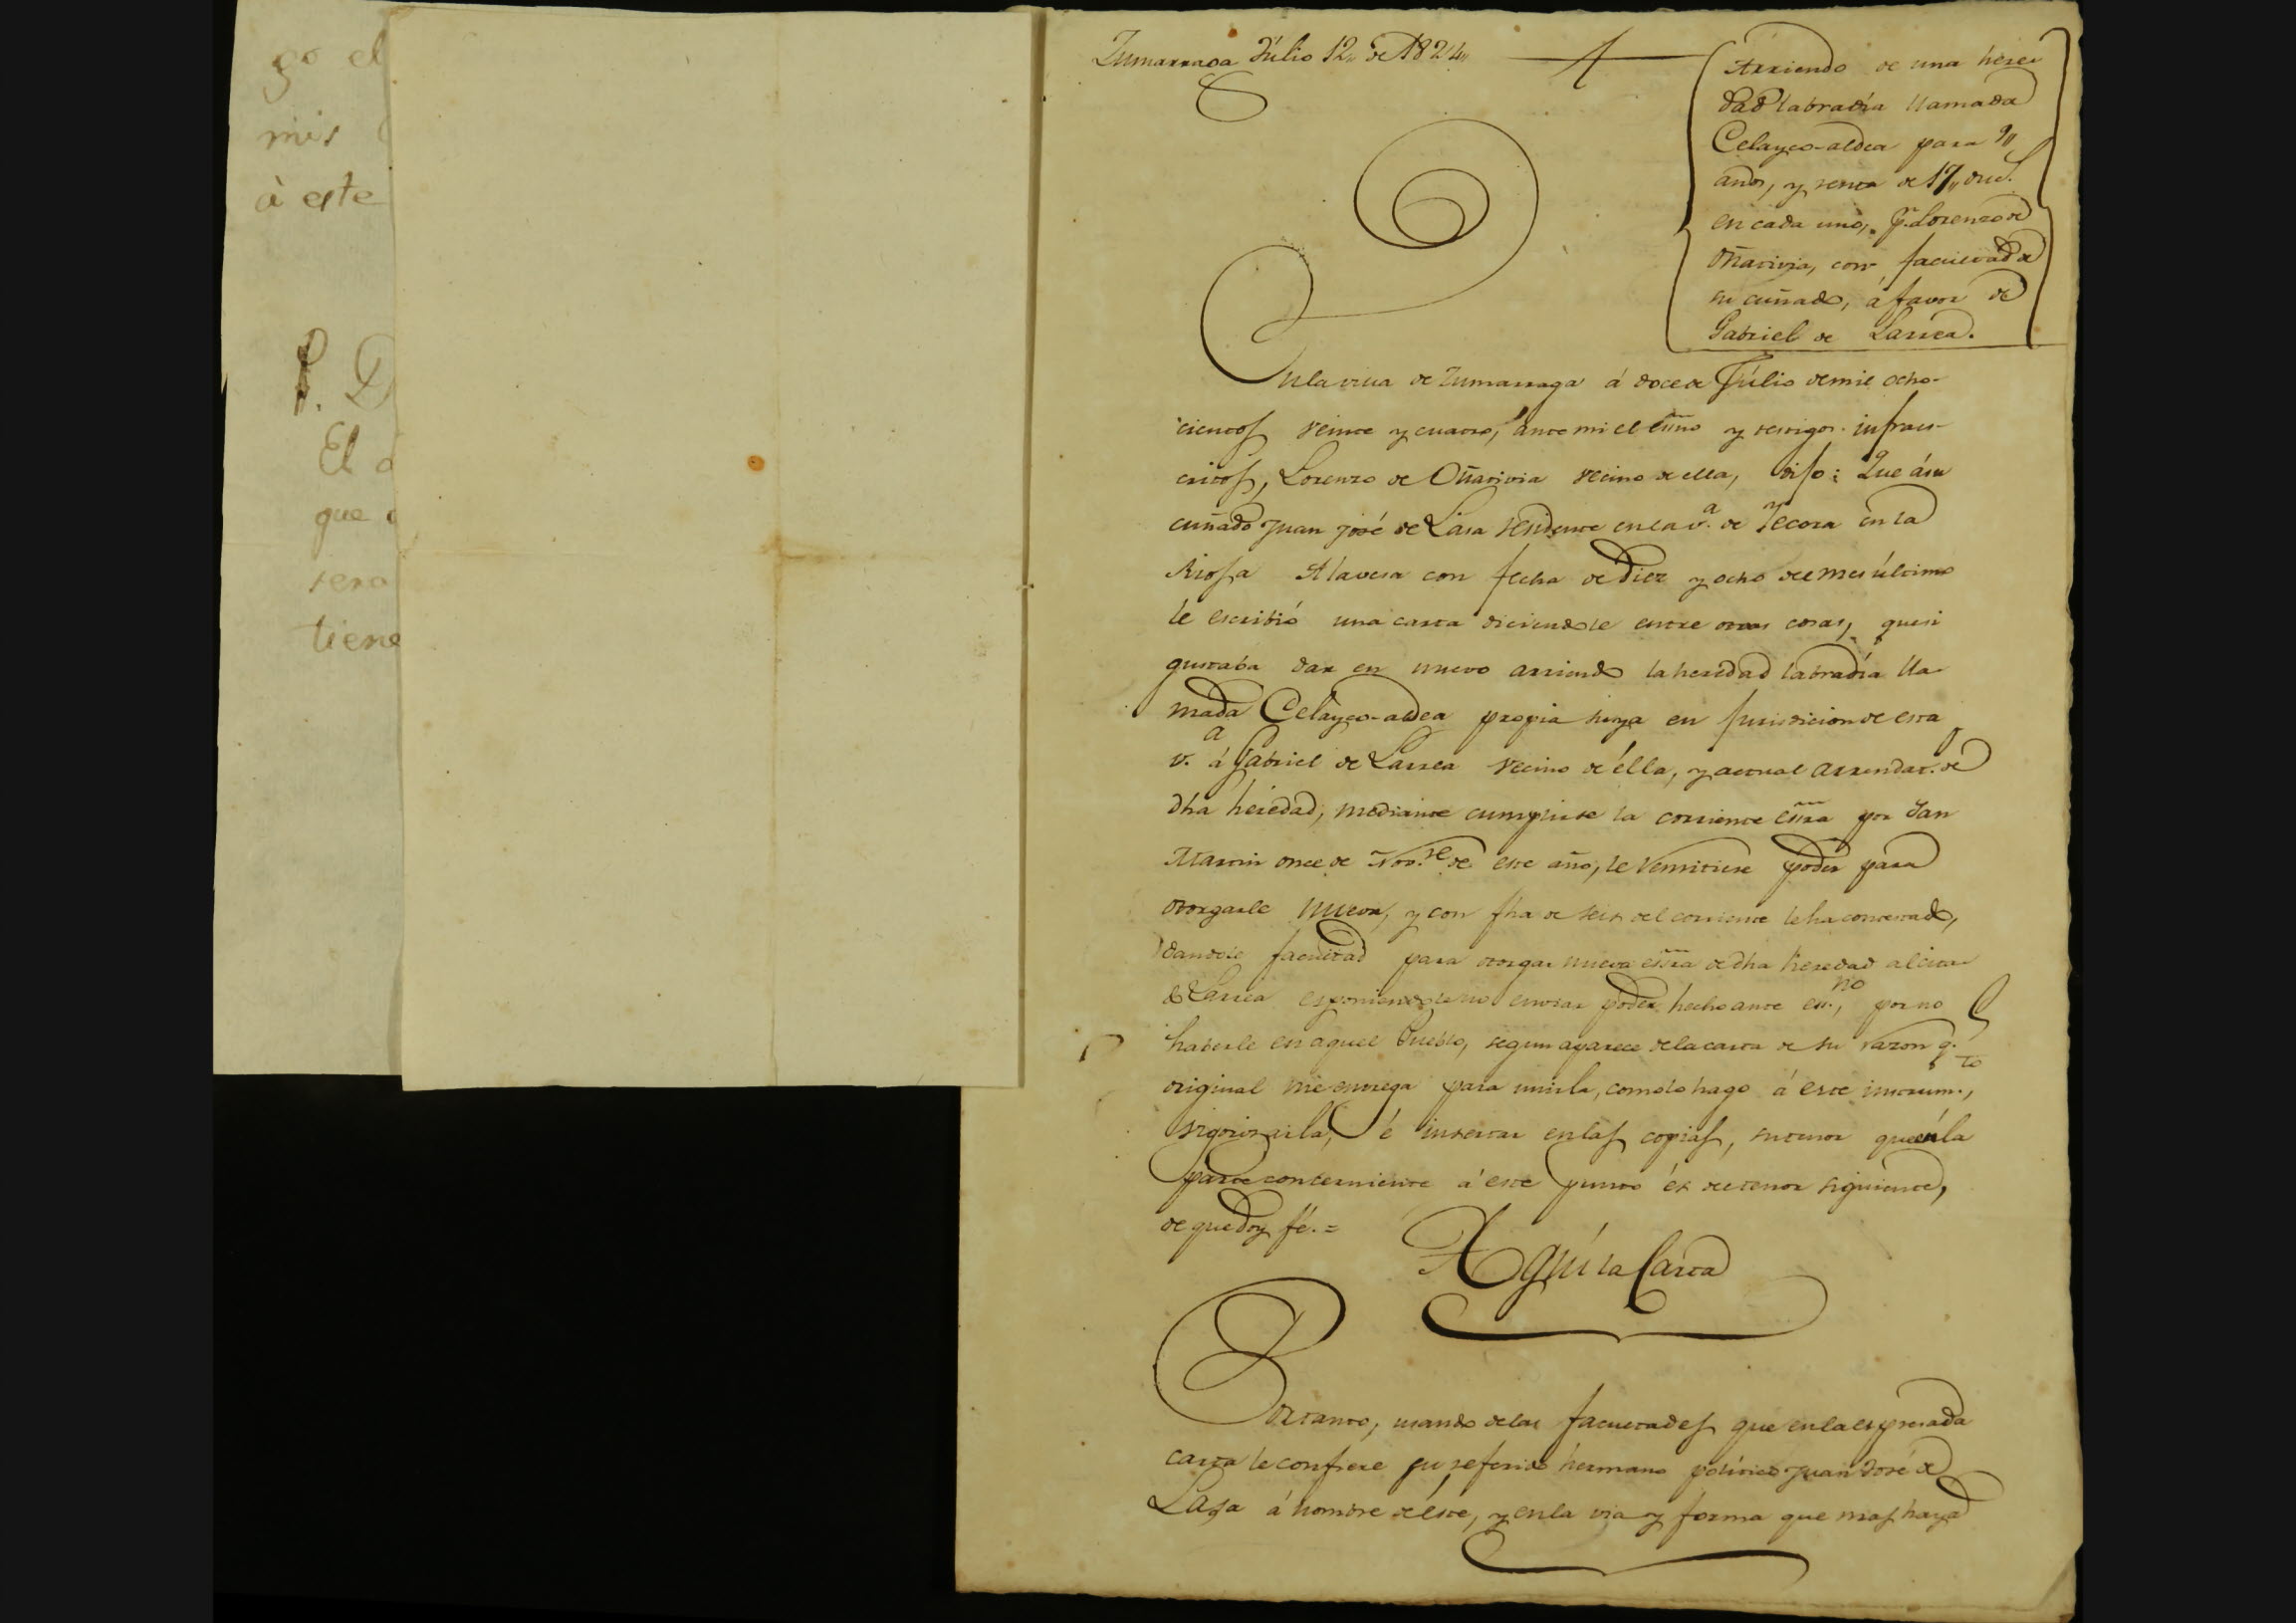 go el
mis
à este
P. D
El
que
sera
tiene
Zumarraga Júlio 12,, de 1824,,
Arriendo de una here-
dad labradía llamada
Celayco-aldea para 9,,
años, y renta de 17,, duc.s
en cada uno, p.r Lorenzo de
Oñativia, con facultad de
su cuñado, á favor de
Gabriel de Larrea.
En la villa de Zumarraga á doce de Júlio de mil ocho-
cientos veinte y cuatro, ante mi el essno y testigos infraes-
critos, Lorenzo de Oñativia vecino de ella, dijo: Que á su
cuñado Juan José de Lasa residente en la v.a de Yecora en la
Rioja Alavesa con fecha de diez y ocho del mes último
le escribió una carta diciendole entre otras cosas, que si
gustaba dar en nuevo arriendo la heredad labradía lla-
mada Celayco-aldea propia suya en jurisdicion de esta
v.a á Gabriel de Larrea vecino de élla, y actual arrendat.o de
dha heredad, mediante cumplirse la corriente essra por San
Martin once de Nov.re de este año, le remitiese poder para
otorgarle nueva, y con fha de seis del corriente le ha contestado,
dandole facultad para otorgar nueva essra de dha heredad al cita-
do Larrea esponiendole no enviar poder hecho ante ess.no, por no
haberle en aquel Pueblo, segun aparece de la carta de su razon q.e
original me entrega para unirla, como lo hago á este instrum.to,
vigorizarla, é insertar en las copias, su tenor que en la
parte concerniente á este punto és del tenor siguiente,
de que doy fé.=
Aquí la Carta
Por tanto, usando de las facultades que en la espresada
carta le confiere su referido hermano político Juan José de
Lasa á nombre de éste, y en la via y forma que mas haya